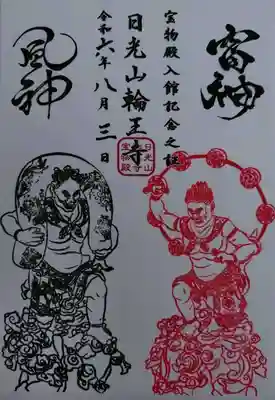 雷神
宝物殿入館記念之証
日光山輪王寺
日光山
輪王寺
宝物殿
令和六年八月三日
風神